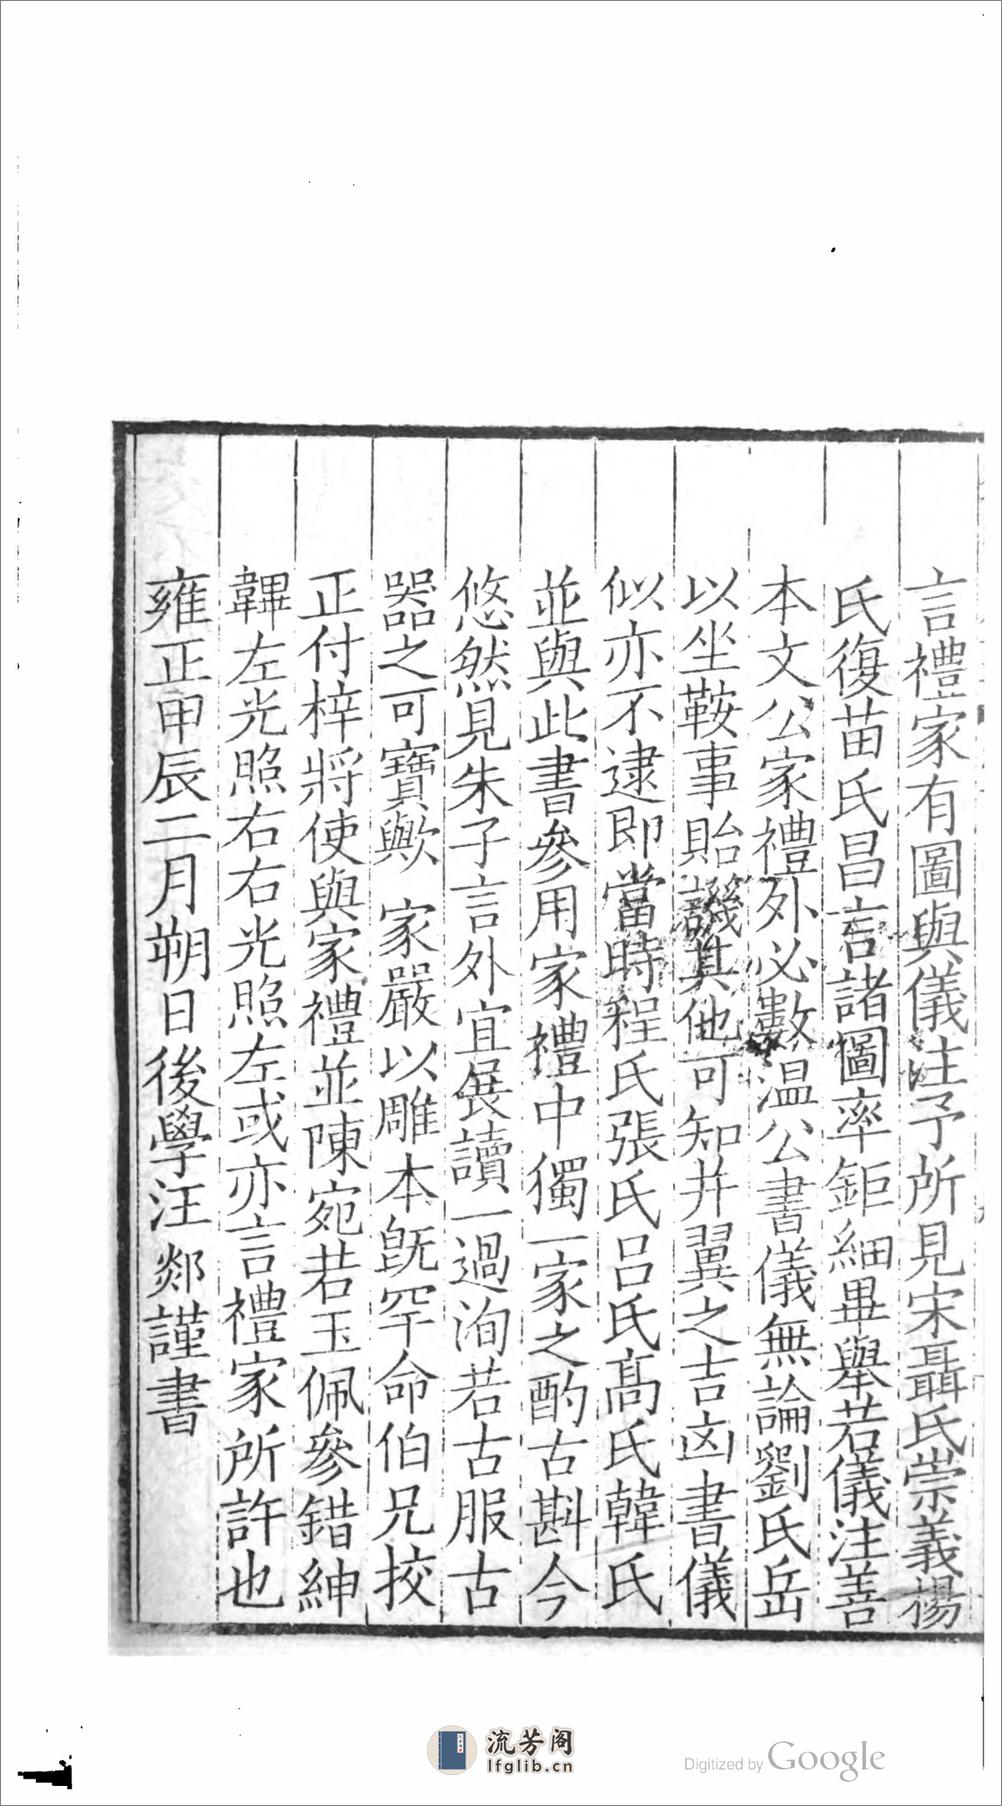 言禮家有圖與儀注予所見宋聶氏崇義楊
氏復苗氏昌言諸圖率鉅細畢舉若儀注善
本文公家禮外必數温公書儀無論劉氏岳
以坐鞍事貽譏其他可知并翼之吉凶書儀
似亦不逮即當時程氏張氏吕氏高氏韓氏
並與此書參用家禮中獨一家之酌古斟今
悠然見朱子言外宜展讀一過洵若古服古
器之可寶歟 家嚴以雕本旣罕命伯兄挍
正付梓將使與家禮並陳宛若玉佩參錯紳
韠左光照右右光照左或亦言禮家所許也
雍正甲辰二月朔日後學汪郯謹書
流芳阁
lfglib.cn
Digitized by Google